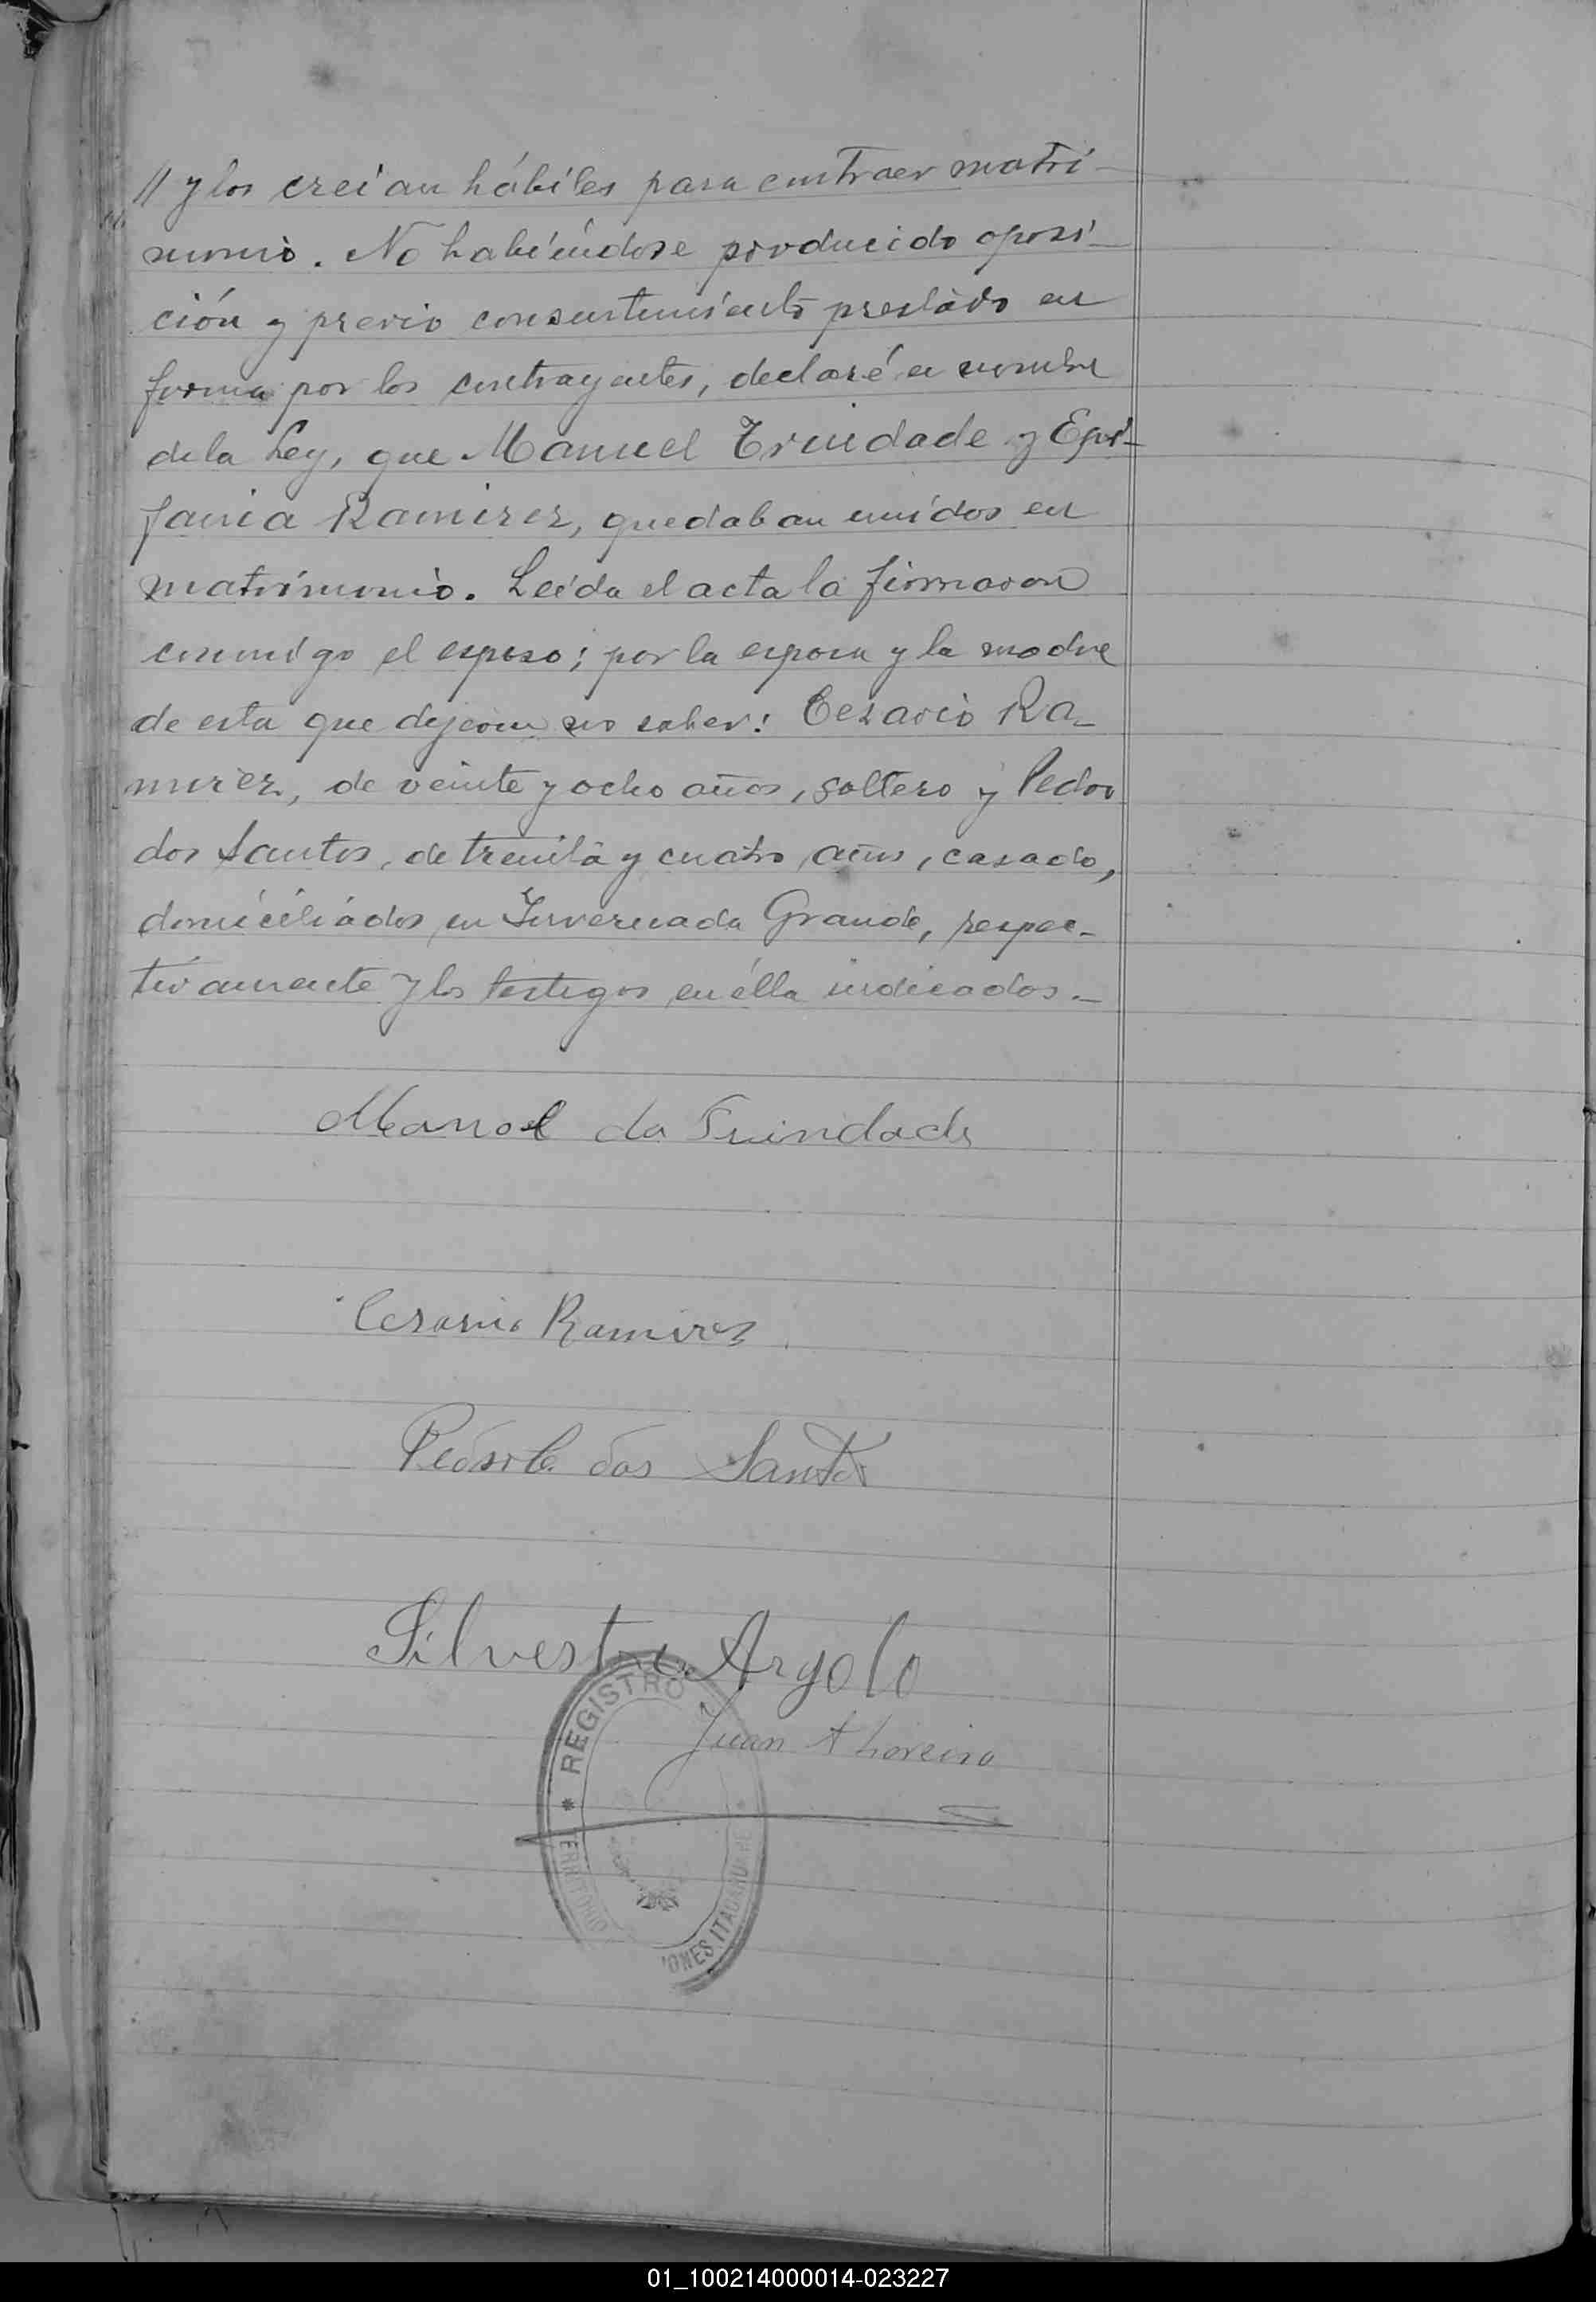 // y los creían hábiles para contraer matri-
monio. No habiéndose producido oposi-
ción y previo consentimiento prestado en
forma por los contrayentes, declaré en nombre
de la Ley, que Manuel Trindade y Epi-
fania Ramirez, quedaban unidos en
matrimonio. Leída el acta la firmaron
conmigo el esposo; por la esposa y la madre
de esta que dijeron no saber: Cezario Ra-
mirez, de veinte y ocho años, soltero y Pedro
dos Santos, de treinta y cuatro años, casado,
domiciliados en Invernada Grande, respec-
tivamente y los testigos en élla indicados.-
Manoel da Trindade
Cesario Ramires
Pedro C. dos Santos
Silvestre Argolo
Juan A
REGISTRO
TERRITORIO
IONES ITACARUARE
01_100214000014-023227